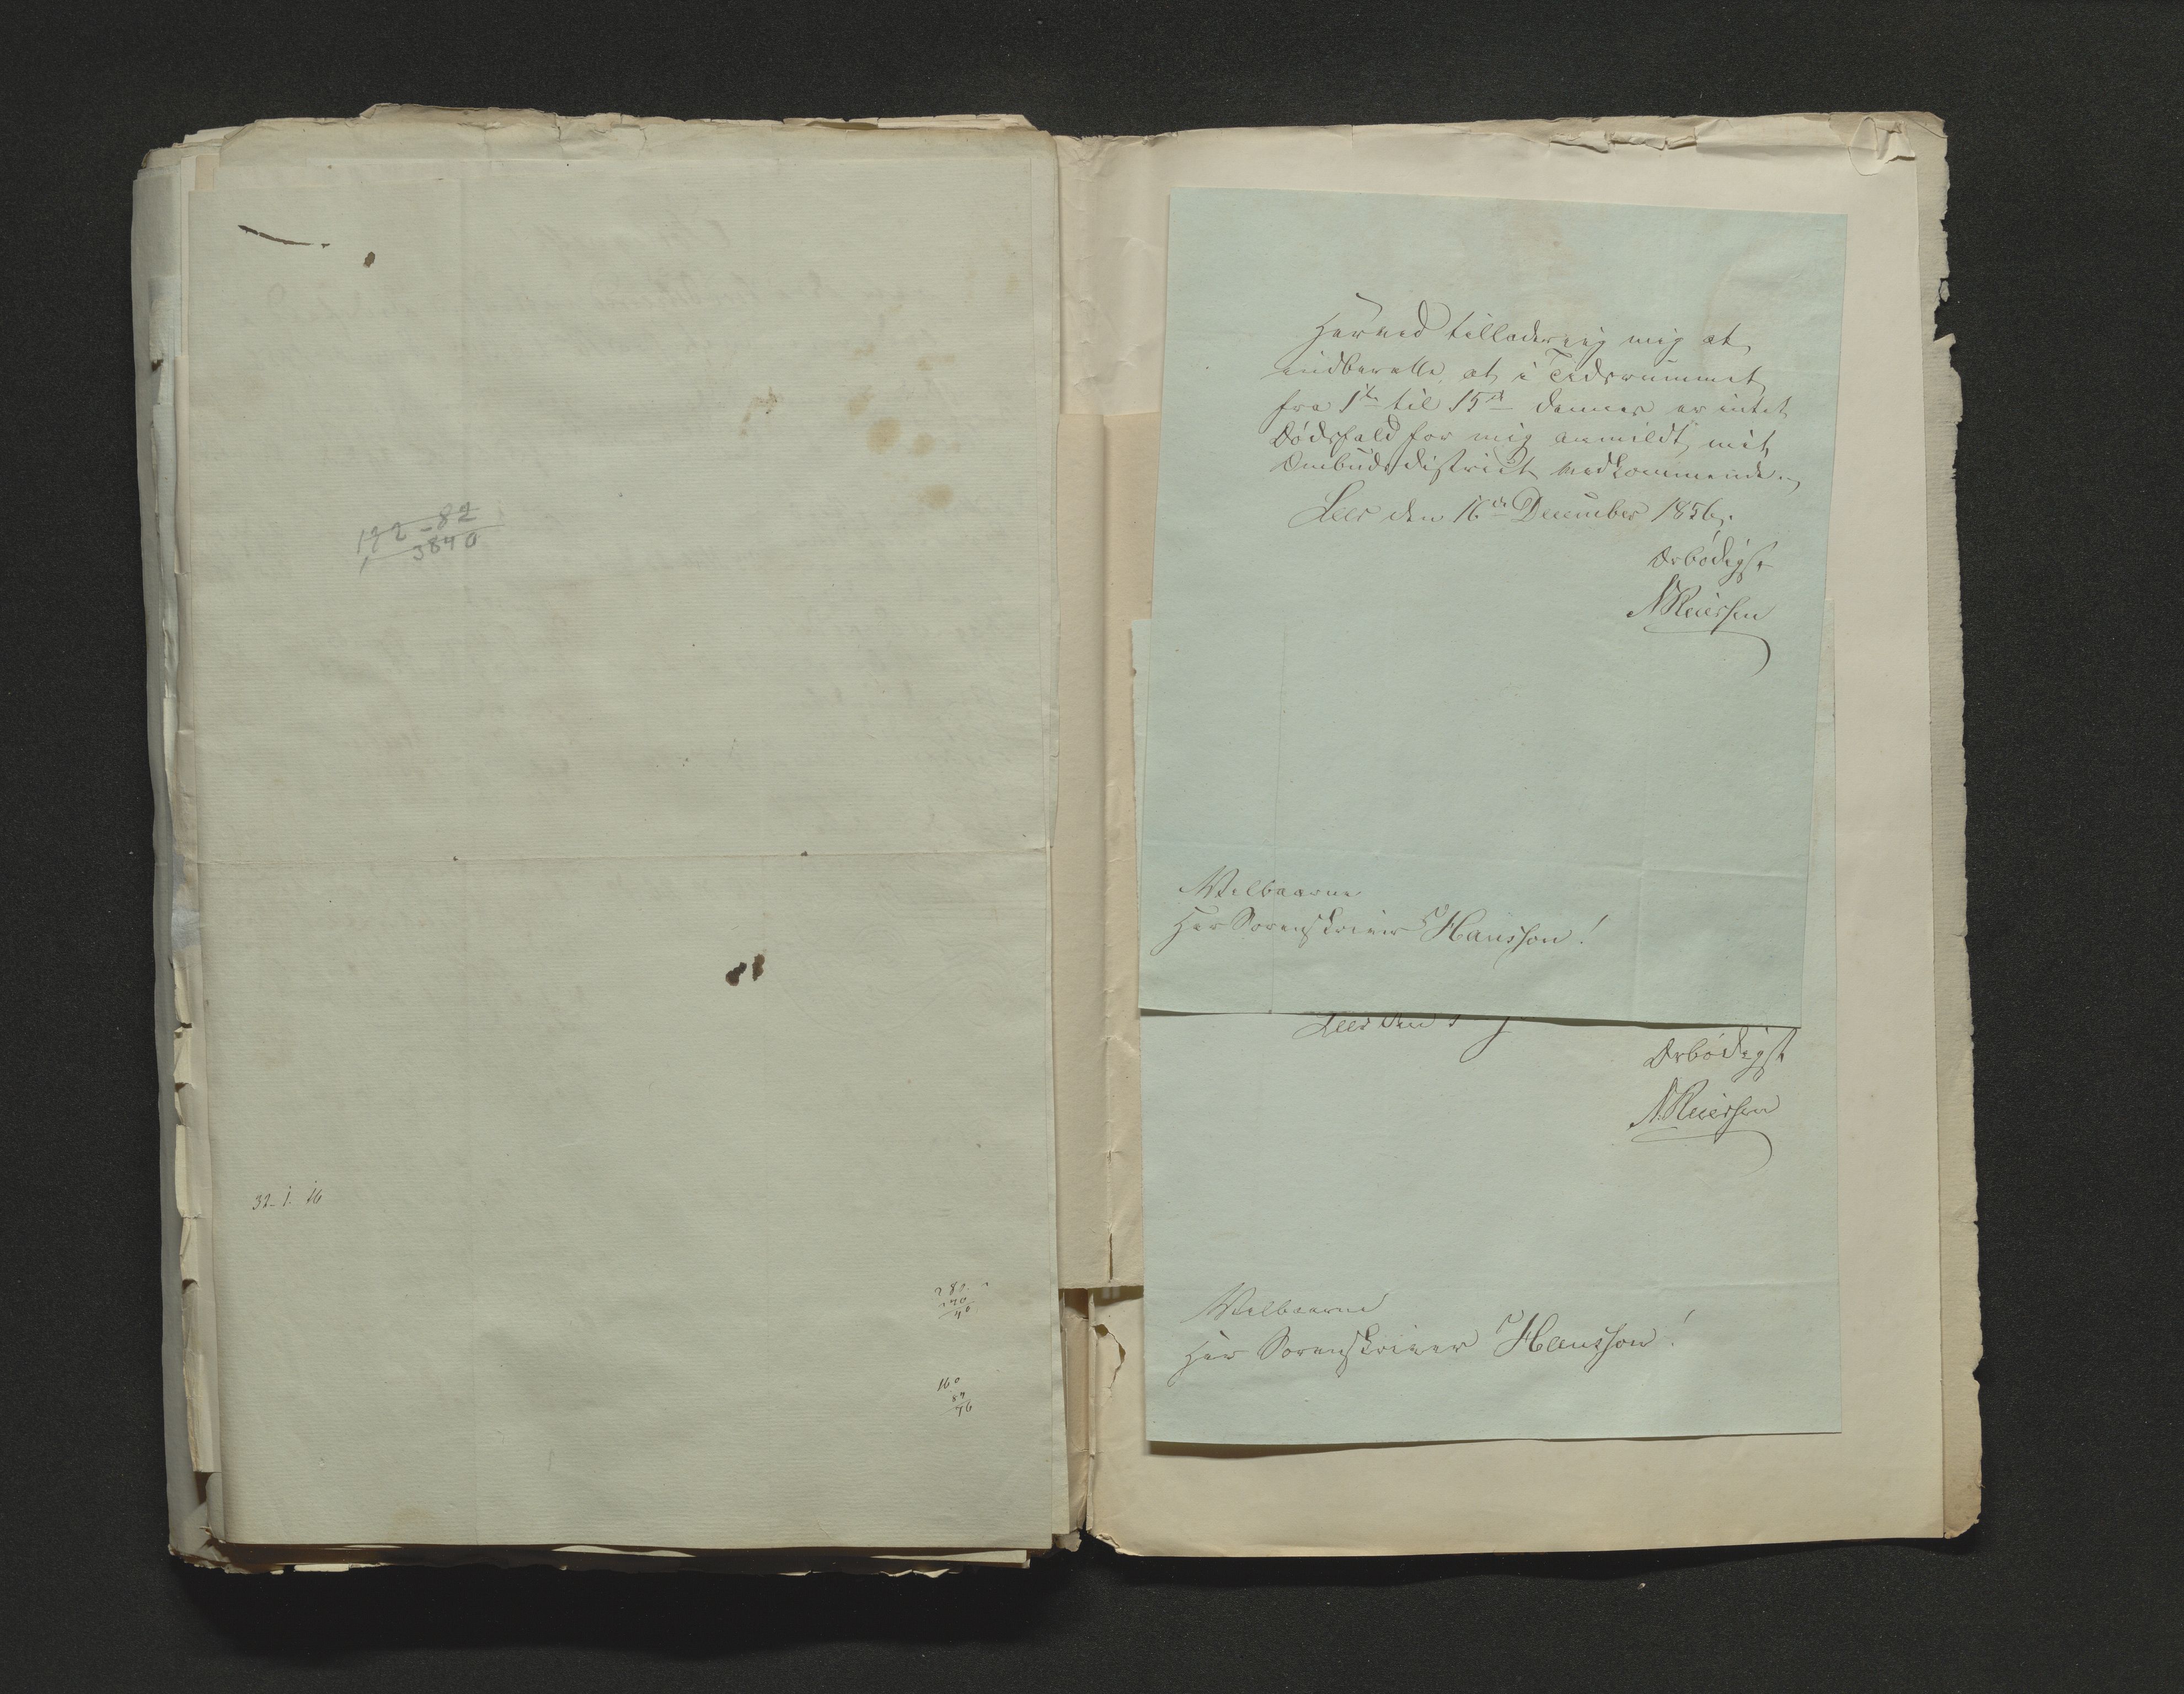 192 - 82
3840
32 - 1. 16
280
240
40
160
84
76
Herved tillader jeg mig at
indberette, at i Tidsrummet
fra 1ste til 15de dennes er intet
Dødsfald for mig anmeldt, mit
Ombudsdistrict vedkommende.
Leer den 16de December 1856.
Ærbødigst
N Reiersen
Velbaarne
Her Sorenskriver Hansson!
Leer den
Ærbødigst
N. Reiersen
Velbaarne
Her Sorenskriver Hansson!